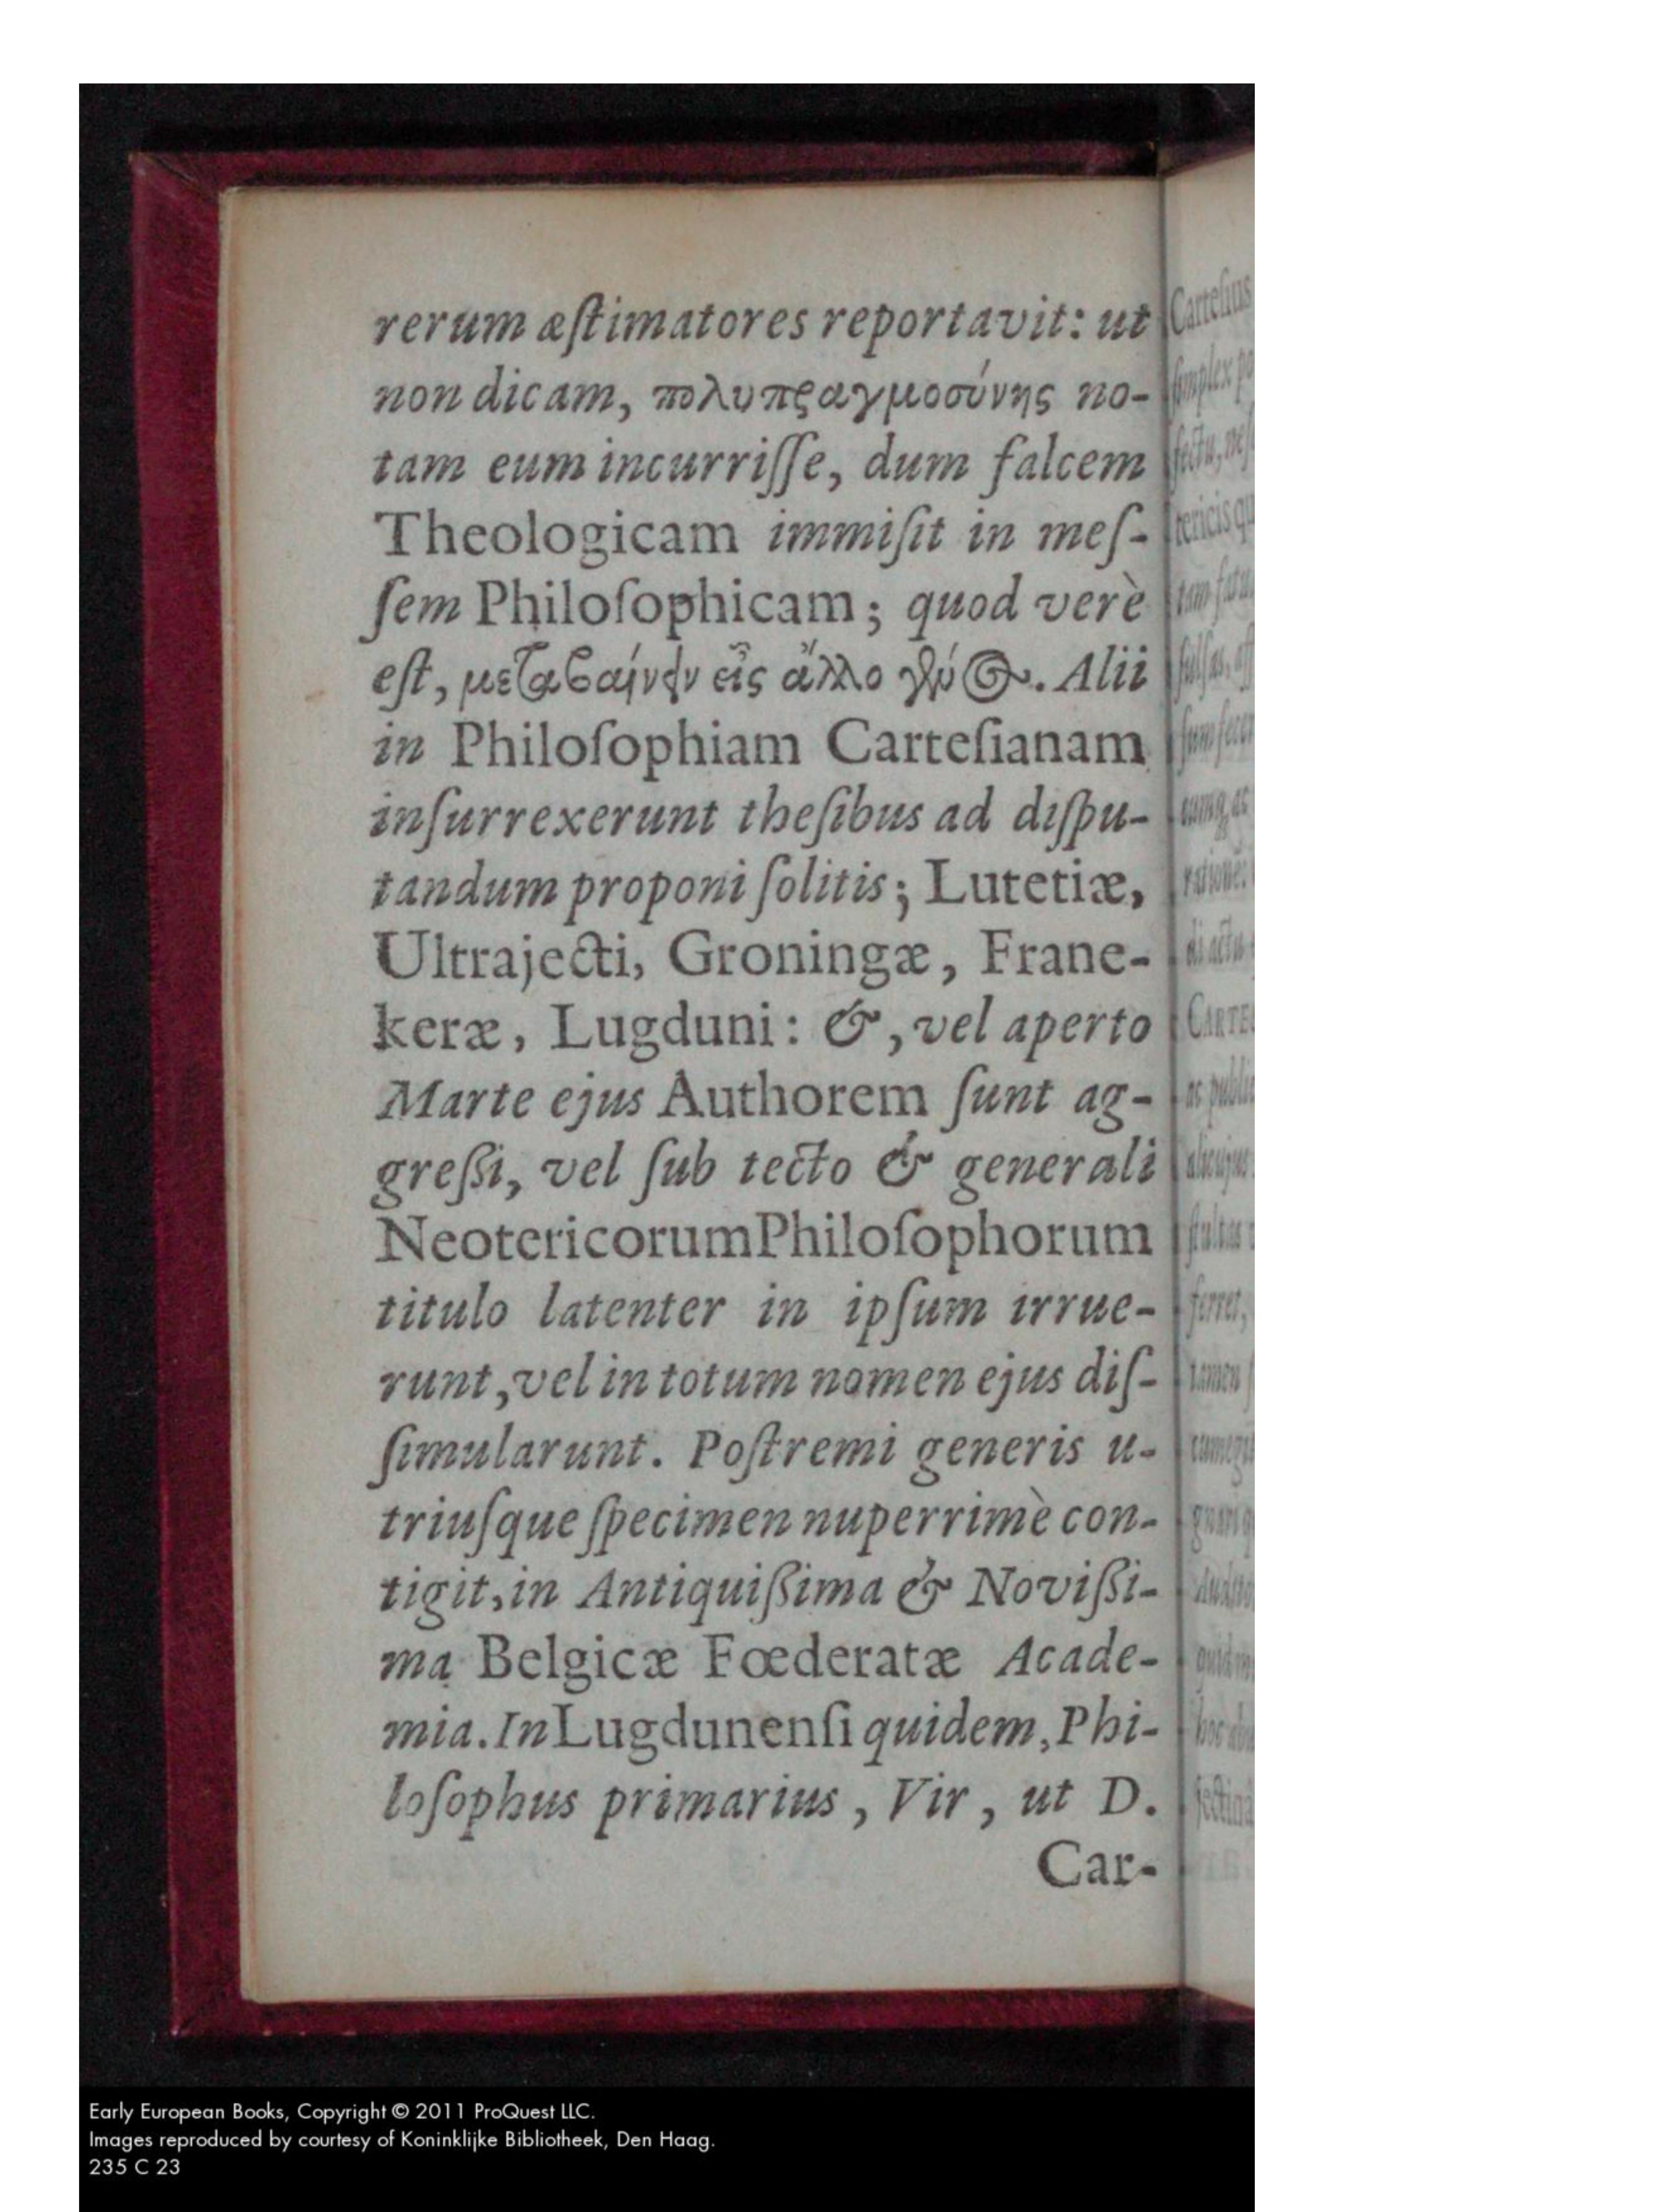 rerum æſtimatores reportavit: ut
non dicam, πολυπραγμοσύνης no-
tam eum incurriſſe, dum falcem
Theologicam immiſit in meſ-
ſem Philoſophicam; quod verè
eſt, μεταβαίνειν εἰς ἄλλο γένος. Alii
in Philoſophiam Carteſianam
inſurrexerunt theſibus ad diſpu-
tandum proponi ſolitis; Lutetiæ,
Ultrajecti, Groningæ, Frane-
keræ, Lugduni: &, vel aperto
Marte ejus Authorem ſunt ag-
greſſi, vel ſub tecto & generali
Neotericorum Philoſophorum
titulo latenter in ipſum irrue-
runt, vel in totum nomen ejus diſ-
ſimularunt. Poſtremi generis u-
triuſque ſpecimen nuperrimè con-
tigit, in Antiquiſſima & Noviſſi-
ma Belgicæ Fœderatæ Acade-
mia. In Lugdunenſi quidem, Phi-
loſophus primarius, Vir, ut D.
Car-
Early European Books, Copyright © 2011 ProQuest LLC.
Images reproduced by courtesy of Koninklijke Bibliotheek, Den Haag.
235 C 23